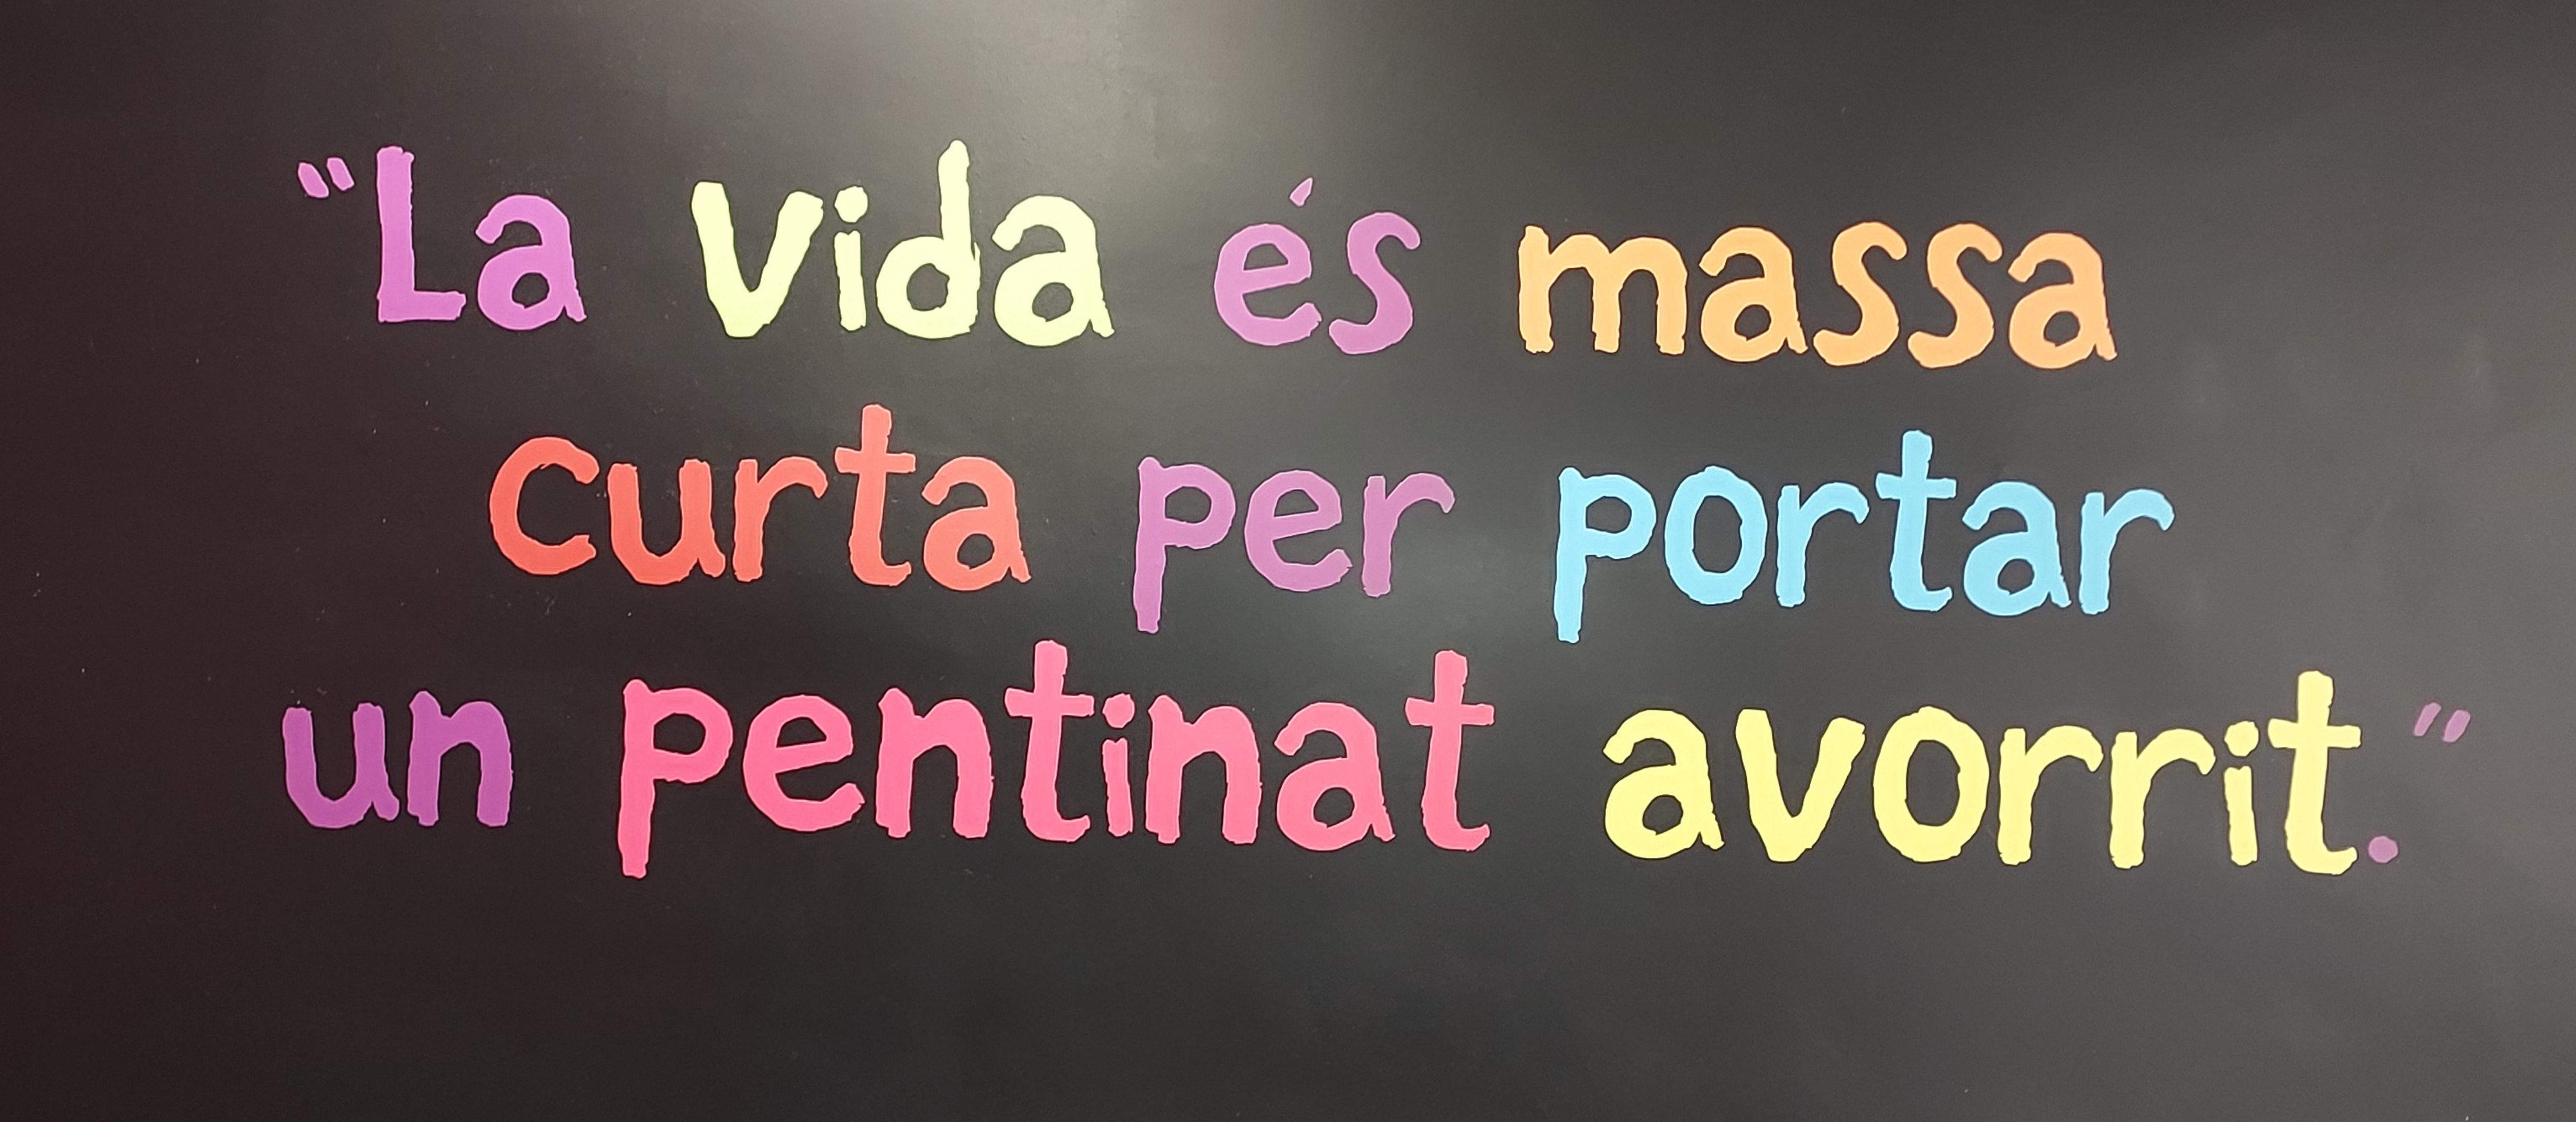 “La vida és massa
curta per portar
un pentinat avorrit.”